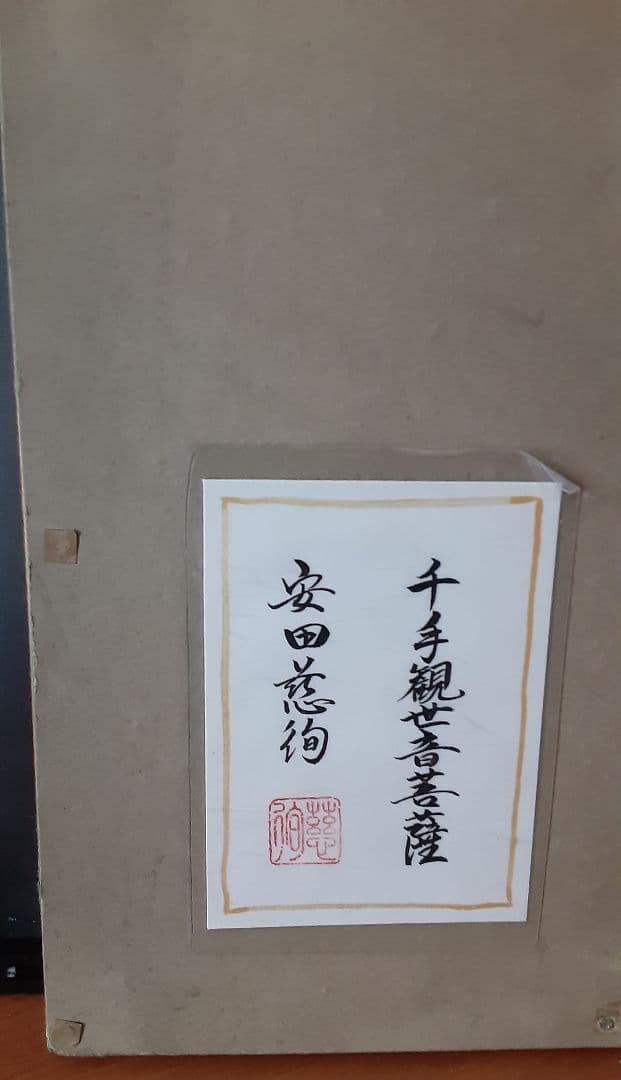 千手観世音菩薩
安田慈徇
慈徇